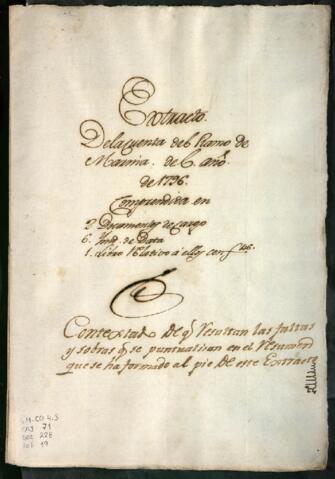 Extracto.
De la cuenta del Ramo de
Marina. de el año
de 1796.
Comprendida en
2. Documentos de cargo
6. Ynd. de Data
1. Libro relativo a ellos con
Contextado De q̃ resultan las faltas
y sobras q̃ se puntualizan en el resumen
que se ha formado al pie De este Extracto
CAJ 71
DOC 228
fol 19